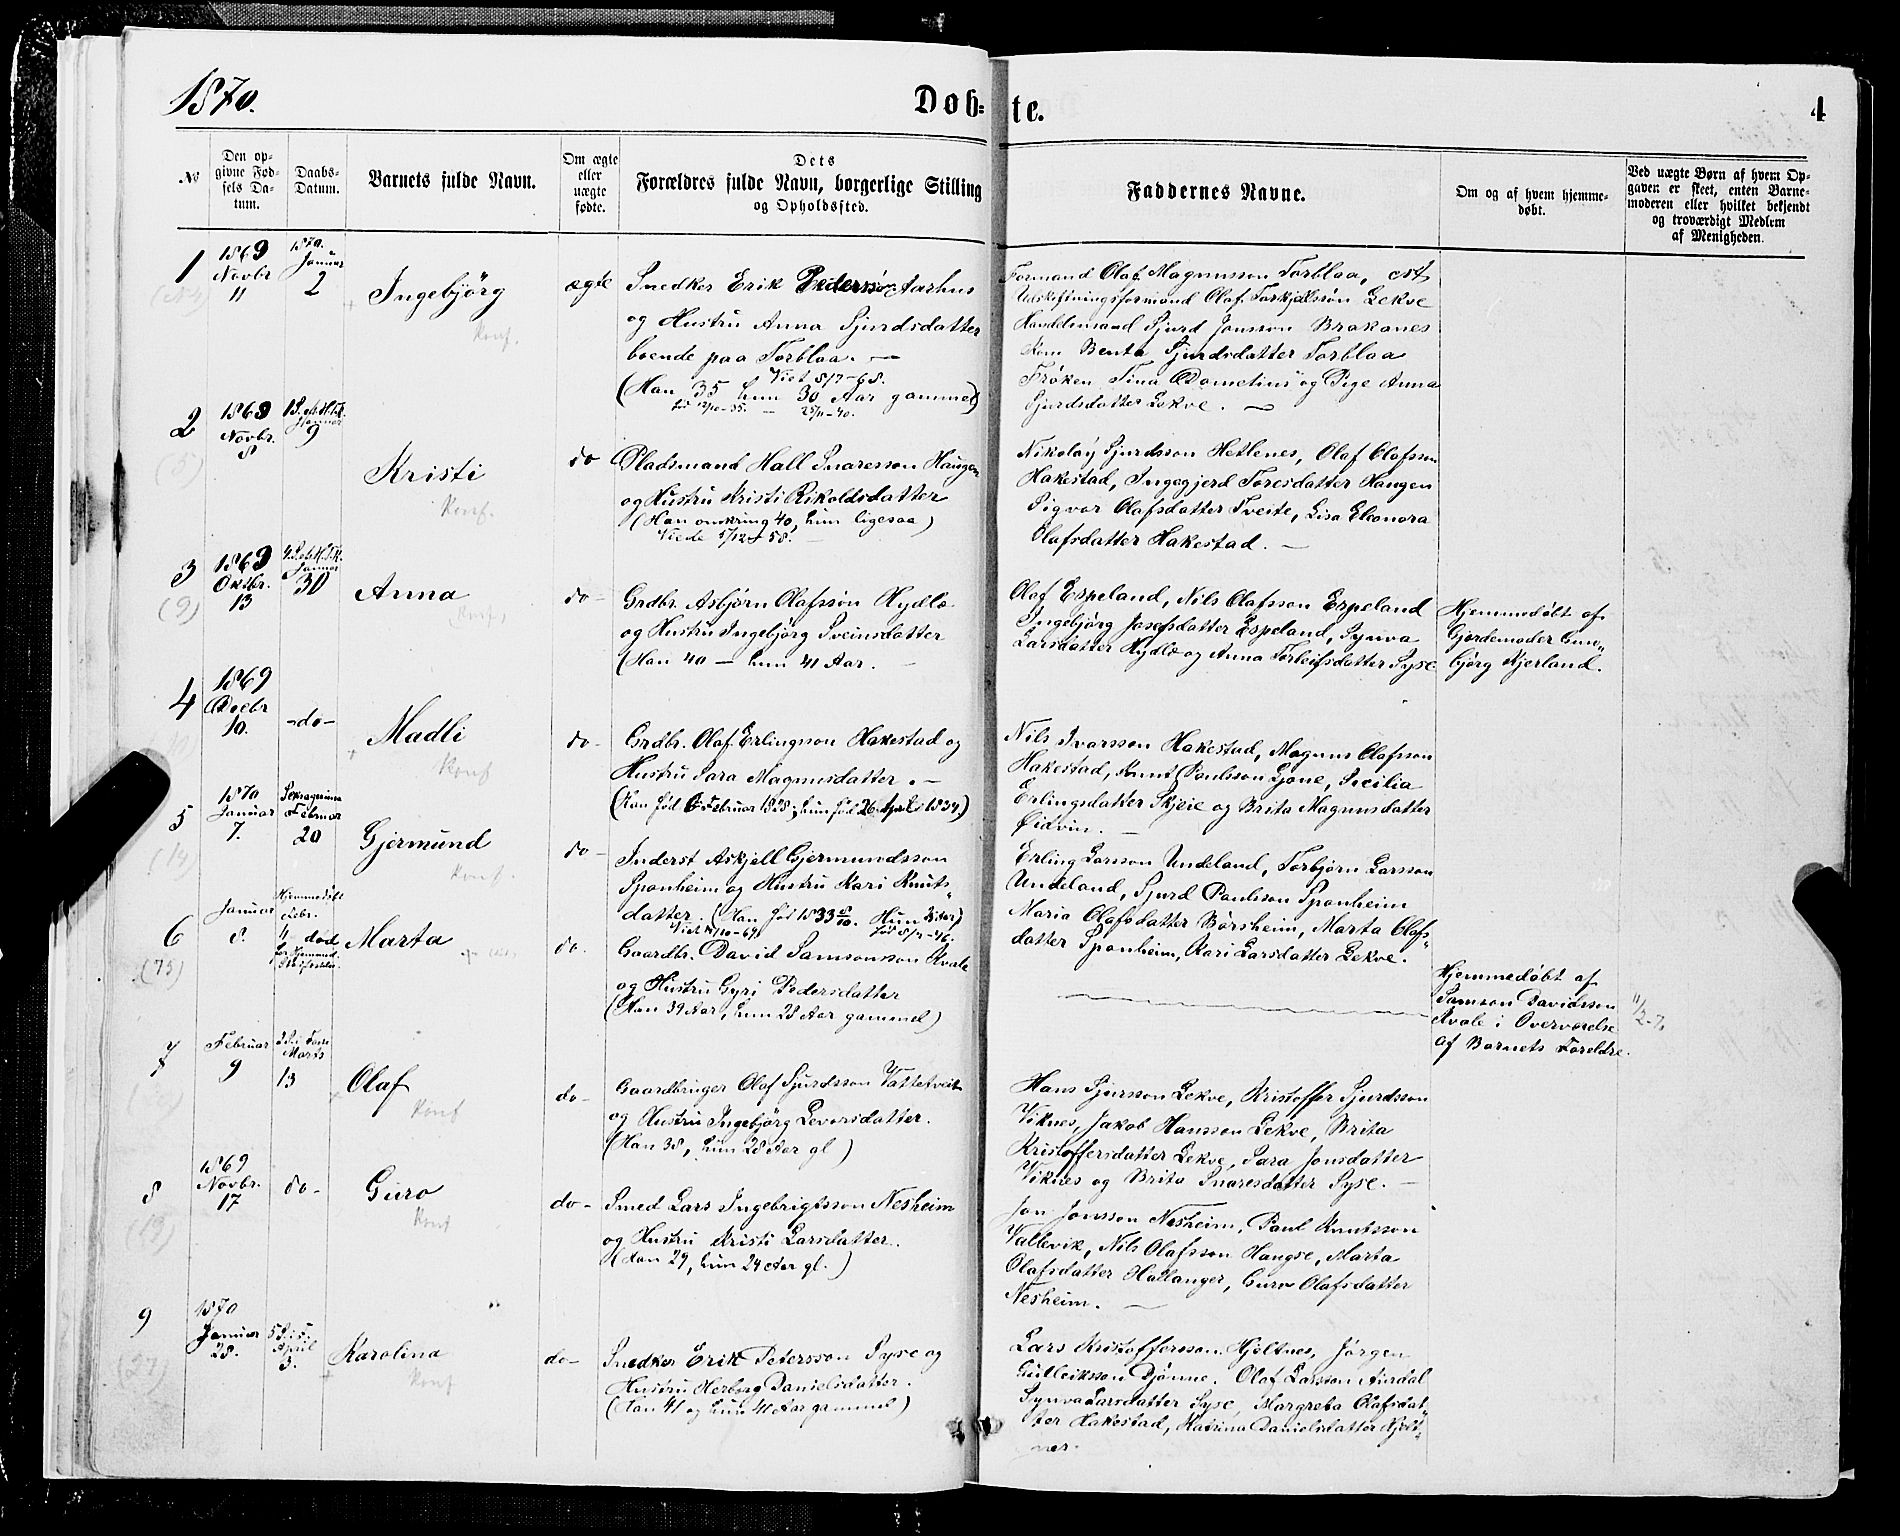 1870.
Døb-te.
4
№
Den opgivne Fødsels Datum.
Daabs-Datum.
Barnets fulde Navn.
Om ægte eller uægte fødte.
Dets Forældres fulde Navn, borgerlige Stilling og Opholdssted.
Faddernes Navne.
Om og af hvem hjemmedøbt.
Ved uægte Børn af hvem Opgaven er skeet, enten Barnemoderen eller hvilket bekjendt og troværdigt Medlem af Menigheden.
1
1869
Novbr
11
1870.
Januar
2
Ingebjörg
Konf.
ægte
Snedker Erik Pederss. Aarhus
og Hustru Anna Sjurdsdatter
boende paa Torblaa. —
Viet 5/7-68.
(Han 35 hun 30 Aar gammel)
Formand Olaf Magnusson Torblaa,
Udskiftningsformand Olaf Torkjelsson Lekve
Handelsmand Sjurd Jonsson Brakanes
Kone Benta Sjurdsdatter Torblaa
Frøken Tina Dometius og Pige Anna
Sjurdsdatter Lekve. —
2
(5)
1869
Novbr.
8
Januar
9
Kristi
Konf.
do
Pladsmand Hall Snaresson Haugen
og Hustru Kristi Rikoldsdatter
(Han omkring 40, hun ligesaa)
Viede 5/12 58.
Nikolay Sjurdsson Hetlenes, Olaf Olafsson
Hakestad, Ingegjerd Toresdatter Haugen
Sigvor Olafsdatter Tveite, Lisa Eleonora
Olafsdatter Hakestad. —
3
(9)
1869
Oktbr.
13
Januar
30
Anna
Konf.
do-
Grdbr. Asbjørn Olafsson Hydle
og Hustru Ingebjörg Sveinsdatter
(Han 40 — hun 41 Aar. —
Olaf Espeland, Nils Olafsson Espeland
Ingebjörg Josefsdatter Espeland, Synva
Larsdatter Hydle og Anna Torleifsdatter Syse
Hjemmedöbt af
Gjordemoder Gun-
björg Kjerland.
4
1869
Decbr
10.
-do-
Madli
Konf
do-
Grdbr. Olaf Erlingsson Hakestad og
Hustru Sara Magnusdatter. —
(Han född Februar 1828; hun fød 26 April 1834.)
Nils Ivarsson Hakestad, Magnus Olafsson
Hakestad, Knut Paulsson Gjone, Sicilia
Erlingsdatter Skjeie og Brita Magnusdatter
Øidvin. —
5
(14)
1870
Januar
7.
Sexagesima
Februar
20
Gjermund
Konf.
do-
Inderst Askjell Gjermundsson
Sponheim og Hustru Kari Knuts-
datter. (Han fød 1833 Hun
Erling Larsson Undeland, Torbjørn Larsson
Undeland, Sjurd Paulsson Sponheim
Maria Olafsdatter Børsheim, Marta Olafs-
datter Sponheim, Kari Larsdatter Lekve.
6
(75)
Januar
8.
Hjemmedöbt
Febr.
død
Marta
do.
Gaardbr. David Samsonsson Kvale
og Hustru Gyri Pedersdatter
(Han 39 Aar, hun 28 Aar gammel)
Hjemmedöbt af
Samson Davidsson
Kvale i Overværelse
af Barnets Foreldre.
7
Februar
9
Marts
13
Olaf
Konf
do-
Gaardbruger Olaf Sjurdsson Vattetveit
og Hustru Ingebjörg Levorsdatter.
(Han 38, hun 28 Aar gl)
Hans Sjursson Lekve, Kristoffer Sjurdsson
Viknes, Jakob Hansson Lekve, Brita
Kristoffersdatter Lekve, Sara Jonsdatter
Viknes og Brita Snaresdatter Syse. —
8
(19)
1869
Novbr.
17
do-
Guro
Konf
do-
Smed Lars Ingebrigtsson Nesheim
og Hustru Kristi Larsdatter.
(Han 29, hun 24 Aar gl.)
Jon Jonsson Nesheim, Paul Knutsson
Vallevik, Nils Olafsson Haugse, Marta
Olafsdatter Hallanger, Guro Olafsdatter
Nesheim. —
9
(27)
1870
Januar
28.
April
3.
Karolina
Konf
do-
Snedker Erik Petersson Syse og
Hustru Herborg Danielsdatter.
(Han 41 og hun 41 Aar gammel)
Lars Kristoffersson Hjeltnes, Jörgen
Gulleiksson Djönne. Olaf Larsson Aurdal
Synva Larsdatter Syse, Margreta Olafsdat-
ter Hakestad, Katrina Danielsdatter Hjelt-
nes.